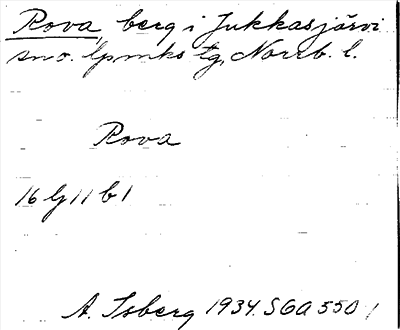 Rova, berg i Jukkasjärvi
sn o. lpmks tg, Norrb. l.
Rova
16 G 11 b 1
A. Isberg 1934. SGA 550